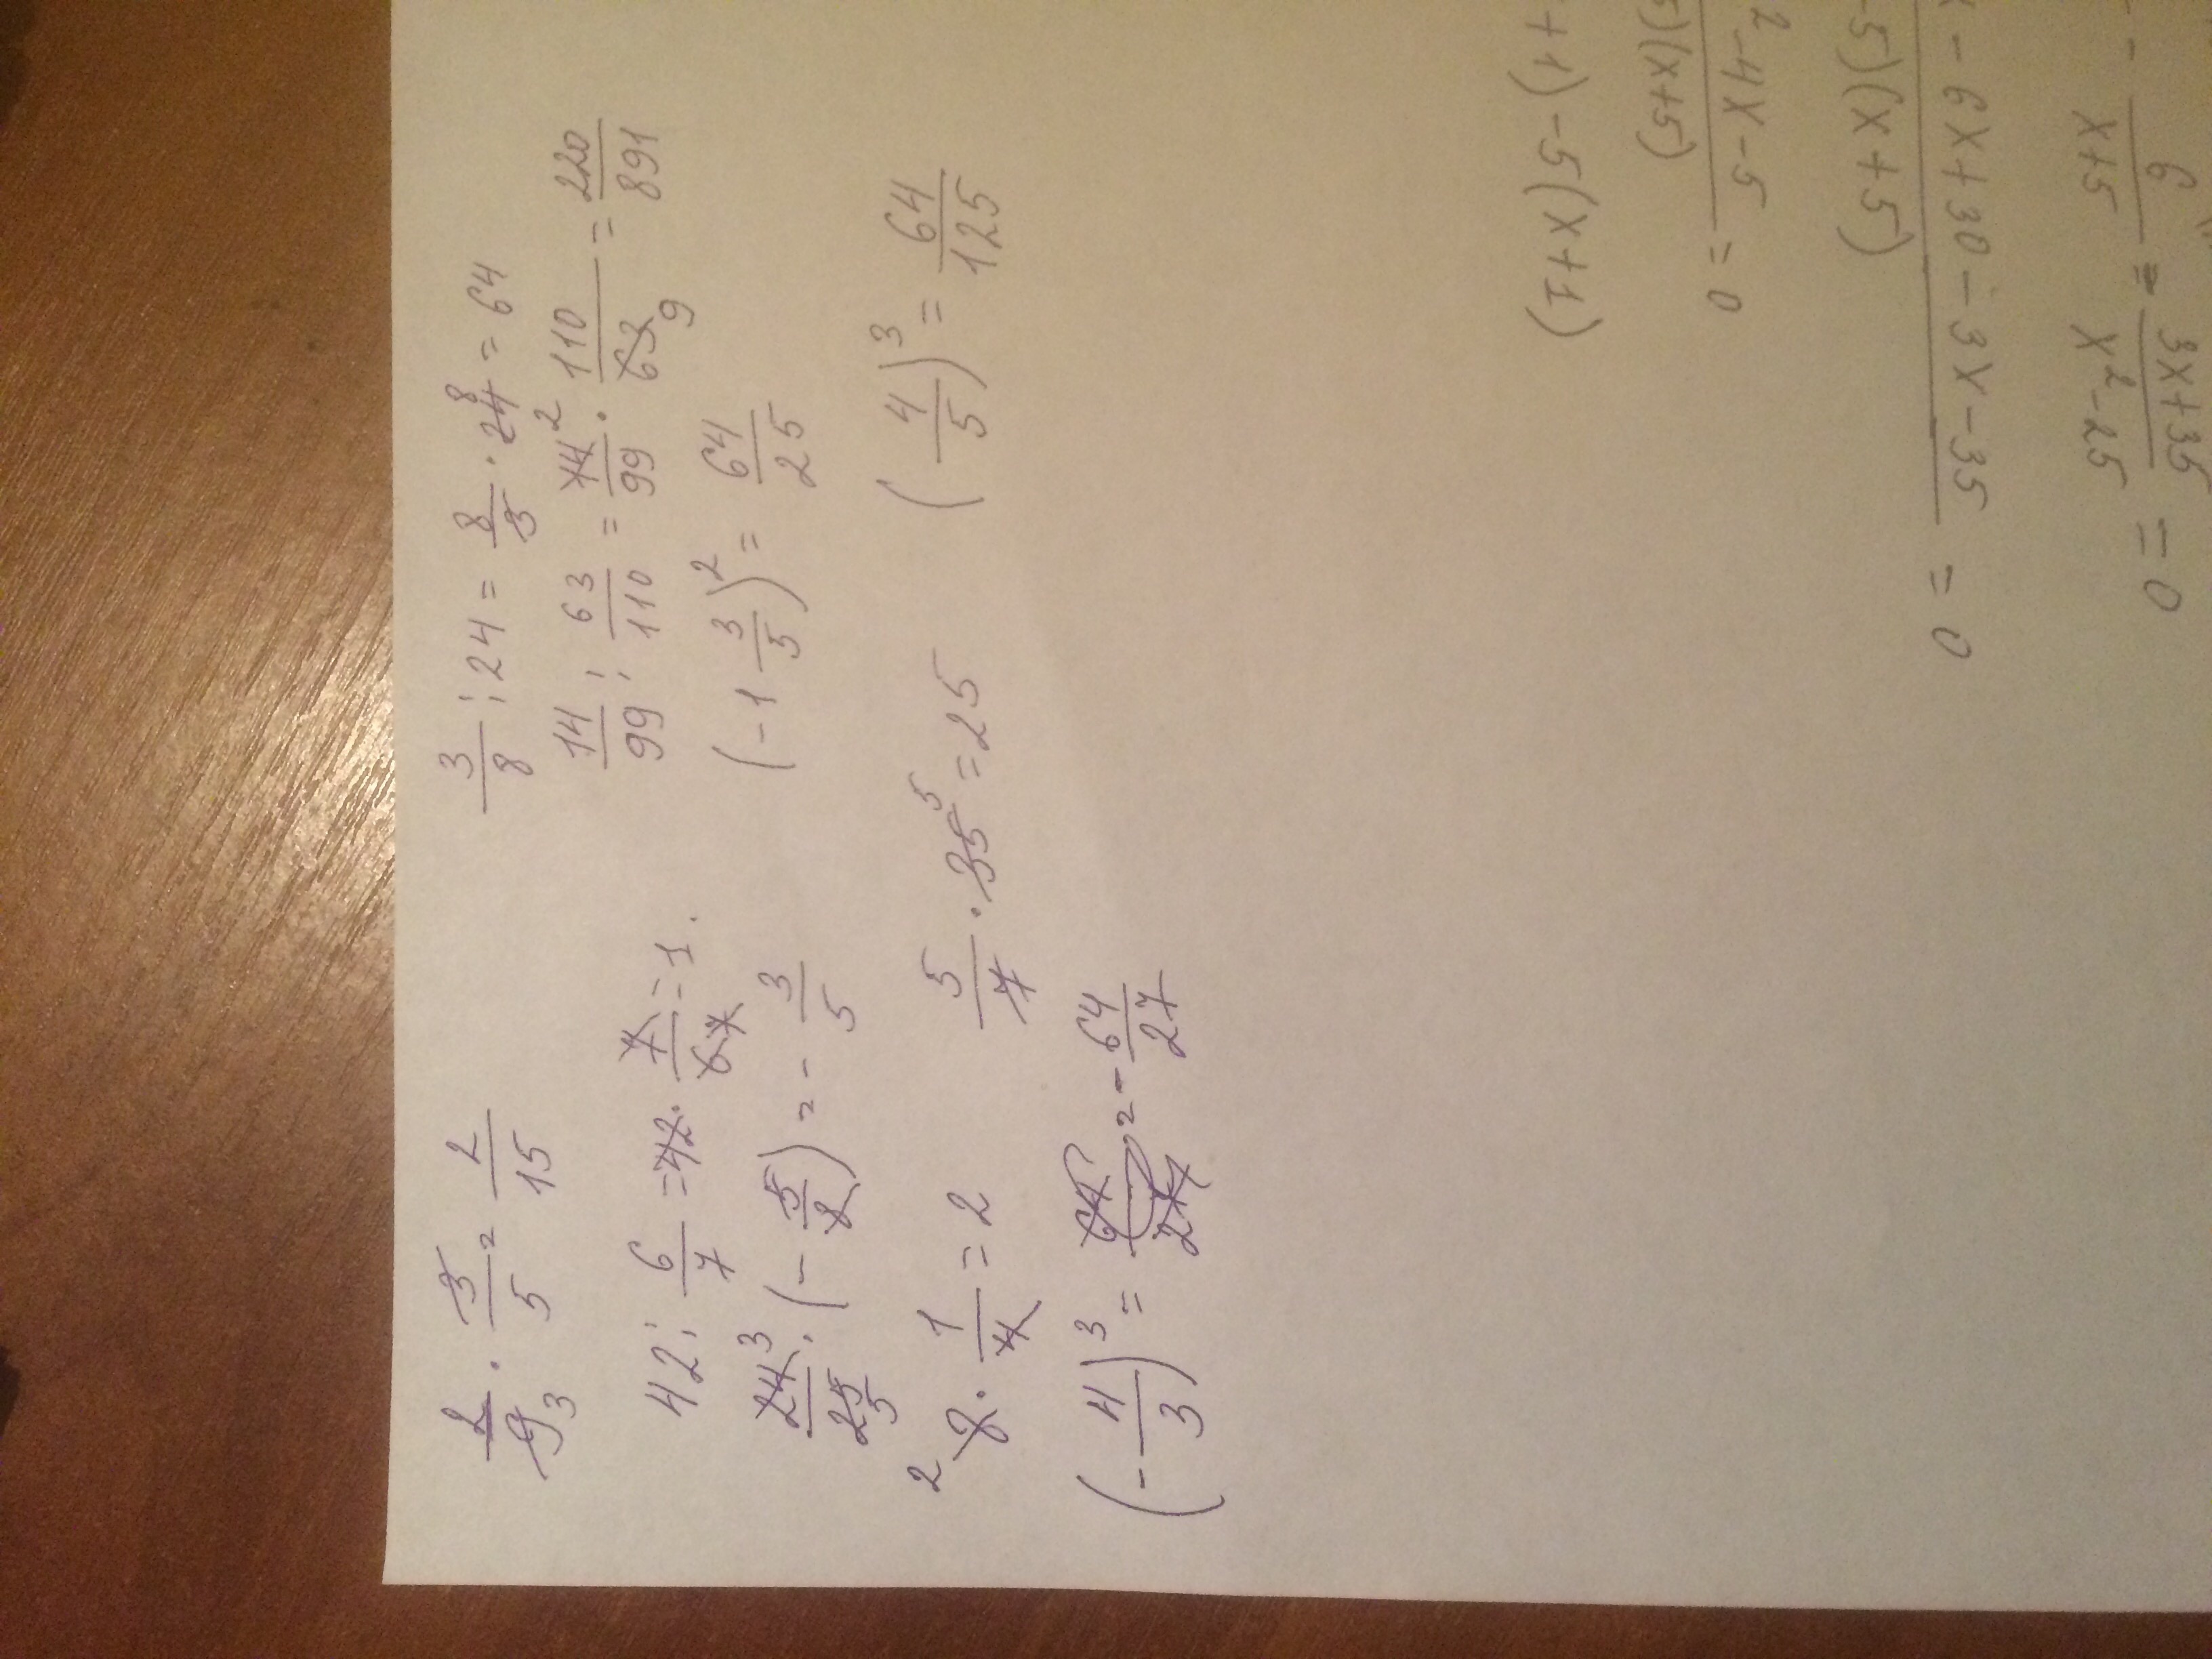 2/9 3 · 3/5 = 2/15
42 : 6/7 = 42 · 7/6·7 = 1.
24 3/25 5 · (- 5/8) = - 3/5
2 8 · 1/4 = 2
5/7 · 35 5 = 25
(- 4/3)³ = 64/27 = - 64/27
3/8 : 24 = 8/3 · 24 8 = 64
14/99 : 63/110 = 14 2/99 · 110/63 9 = 220/891
(-1 3/5)² = 64/25
(- 4/5)³ = 64/125
- 6/x+5 = 3x+35/x²-25 = 0
x - 6x+30 - 3x - 35/-5)(x+5) = 0
² - 4x - 5/5)(x+5) = 0
+1) - 5(x+1)